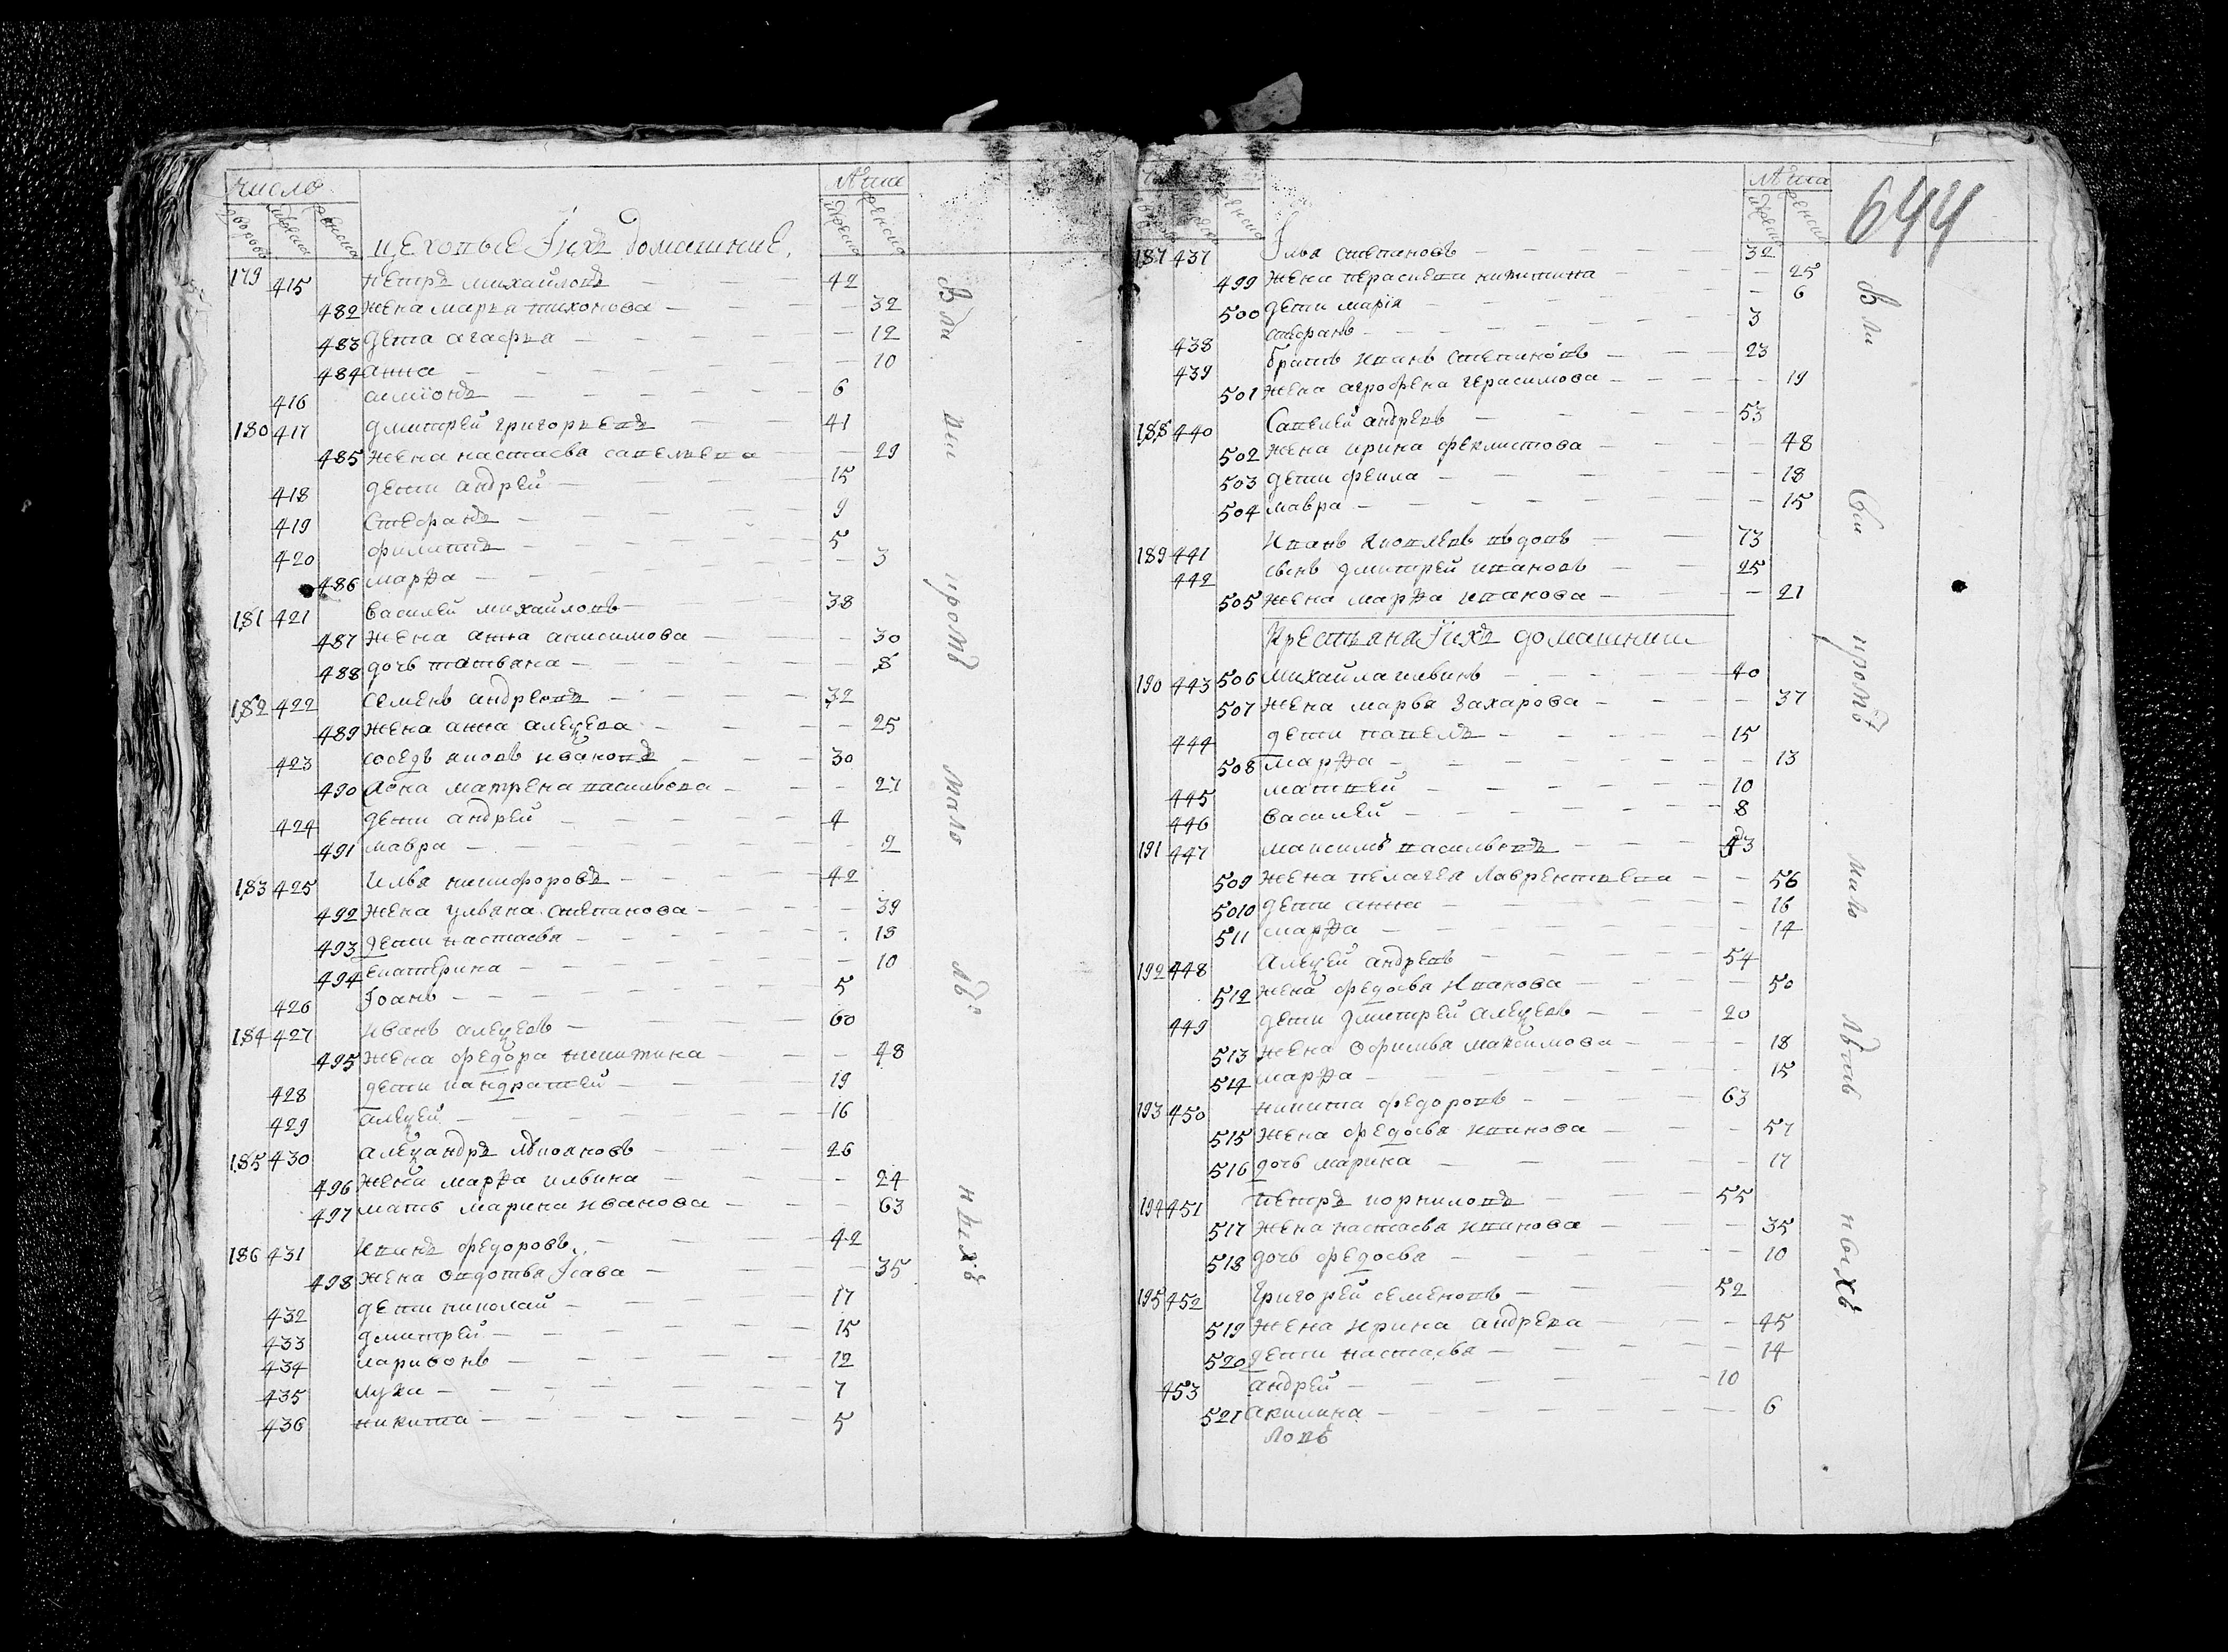 число
дворовъ мужеска женска
цеховые Їихъ домашние.
лѣта
мужеска женска
179 415 петръ михайловъ 42
482 жена марья тихонова 32
483 дети агафья 12
484 анна 10
416 симїонъ 6
180 417 дмитрей григорьевъ 41
485 жена настасья савельева 29
418 дети андрей 15
419 стефанъ 9
420 филиппъ 5
486 марѳа 3
181 421 василей михайловъ 38
487 жена анна анисимова 30
488 дочь татьяна 8
182 422 семенъ андреевъ 32
489 жена анна алеѯева 25
423 соседъ яковъ ивановъ 30
490 жена матрена васильева 27
424 дети андрей 4
491 мавра 2
183 425 илья никифоровъ 42
492 жена ульяна степанова 39
493 дети настасья 13
494 екатерина 10
426 Їоанъ 5
184 427 иванъ алеѯеевъ 60
495 жена федора никитина 48
428 дети кандратей 19
429 алеѯей 16
185 430 алеѯандръ лукояновъ 26
496 жена марѳа ильина 24
497 мать марина иванова 63
186 431 иванъ федоровъ 42
498 жена овдотья Їсаева 35
432 дети николай 17
433 дмитрей 15
434 ларивонъ 12
435 лука 7
436 никита 5
644
лѣта
мужеска женска
187 437 Їлья степановъ 32
499 жена параскева никитина 25
500 дети марїя 6
438 стефанъ 3
439 братъ иванъ степановъ 23
501 жена агрофена герасимова 19
188 440 Савелей андреевъ 53
502 жена ирина феклистова 48
503 дети фекла 18
504 мавра 15
189 441 иванъ яковлевъ вдовъ 73
442 сынъ дмитрей ивановъ 25
505 жена марѳа иванова 21
Крестьяна Їихъ домашнии
190 443 506 михайла ильинъ 40
507 жена марья захарова 37
444 дети павелъ 15
508 марѳа 13
445 матвей 10
446 василей 8
191 447 максимъ васильевъ 43
509 жена пелагея лаврентьева 56
5010 дети анна 16
511 марѳа 14
192 448 алеѯей андреевъ 54
512 жена федосья иванова 50
449 дети дмитрей алеѯеевъ 20
513 жена офимья максимова 18
514 марѳа 15
193 450 никита федоровъ 63
515 жена федосья иванова 57
516 дочь марина 17
194 451 петръ корниловъ 55
517 жена настасья иванова 35
518 дочь федосья 10
195 452 григорей семеновъ 52
519 жена ирина андреева 45
520 дети настасья 14
453 андрей 10
521 акилина 6